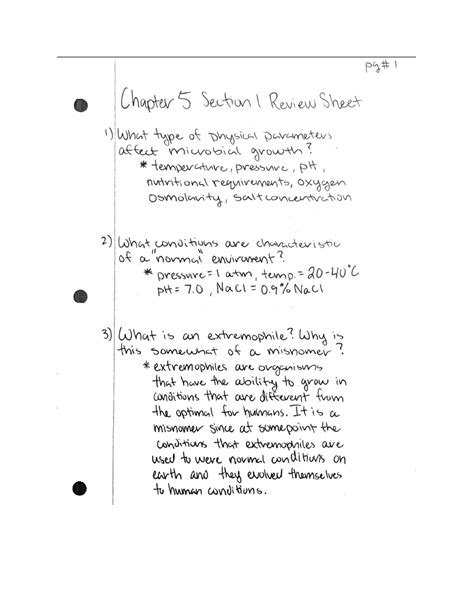 pg# 1
Chapter 5 Section 1 Review Sheet
1) What type of physical parameters
affect microbial growth?
* temperature, pressure, pH,
nutritional requirements, oxygen
osmolarity, salt concentration
2) What conditions are characteristic
of a "normal" enviroment?
* pressure = 1 atm, temp. = 20-40°C
pH = 7.0, NaCl = 0.9% NaCl
3) What is an extremophile? Why is
this somewhat of a misnomer?
* extremophiles are organisms
that have the ability to grow in
conditions that are different from
the optimal for humans. It is a
misnomer since at some point the
conditions that extremophiles are
used to were normal conditions on
earth and they evolved themselves
to human conditions.